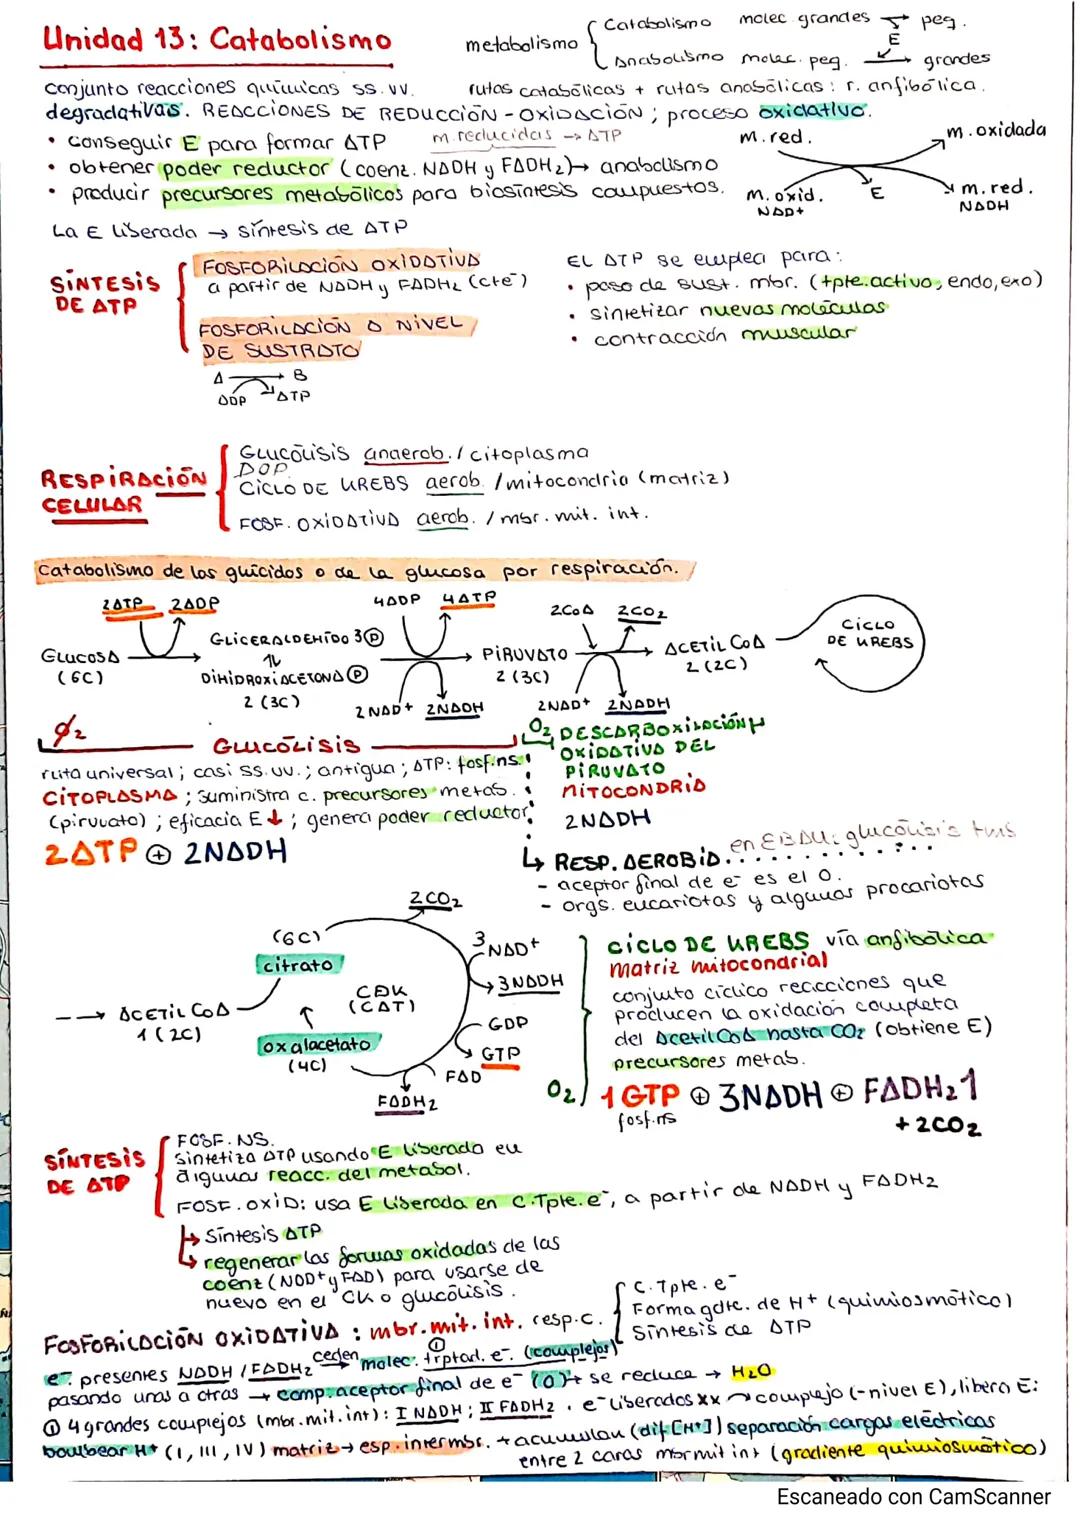 Unidad 13: Catabolismo
metabolismo
Catabolismo molec. grandes → peq.
E
Anabolismo molec. peq. → grandes
conjunto reacciones químicas ss.vv.
rutas catabólicas + rutas anabólicas: r. anfibólica.
degradativas. REACCIONES DE REDUCCIÓN-OXIDACIÓN; proceso oxidativo.
• conseguir E para formar ATP
m. reducidas → ATP
• obtener poder reductor (coenz. NADH y FADH2) → anabolismo
• producir precursores metabólicos para biosíntesis compuestos.
m. red.
m. oxidada
m. oxid.
NAD+
E
m. red.
NADH
La E liberada → síntesis de ATP
SÍNTESIS DE ATP
FOSFORILACIÓN OXIDATIVA
a partir de NADH y FADH2 (cte-)
FOSFORILACIÓN A NIVEL
DE SUSTRATO
A → B
ADP ATP
EL ATP se emplea para:
• paso de sust. mbr. (tpte. activo, endo, exo)
• sintetizar nuevas moléculas
• contracción muscular
RESPIRACIÓN CELULAR
GLUCÓLISIS anaerob. / citoplasma
DOP
CICLO DE KREBS aerob. / mitocondria (matriz)
FOSF. OXIDATIVA aerob. / mbr. mit. int.
Catabolismo de los glúcidos o de la glucosa por respiración.
2ATP 2ADP
4ADP 4ATP
2CoA 2CO2
GLUCOSA
(6C)
GLICERALDEHÍDO 3 P
⇅
DIHIDROXIACETONA P
2 (3C)
2 NAD+ 2NADH
PIRUVATO
2 (3C)
2NAD+ 2NADH
ACETIL CoA
2 (2C)
CICLO
DE KREBS
O2
GLUCÓLISIS
ruta universal; casi ss.vv.; antigua; ATP: fosf.ns.
CITOPLASMA; suministra c. precursores metab.
(piruvato); eficacia E ↓; genera poder reductor
2ATP ⊕ 2NADH
O2 DESCARBOXILACIÓN
OXIDATIVA DEL
PIRUVATO
MITOCONDRIA
2NADH
↳ RESP. AEROBIA
en EBAU: glucólisis
- aceptor final de e- es el O.
- orgs. eucariotas y algunas procariotas
2CO2
(6C)
citrato
ACETIL CoA
1 (2C)
CDK
(CAT)
oxalacetato
(4C)
3 NAD+
3NADH
GDP
GTP
FAD
FADH2
O2
CICLO DE KREBS vía anfibólica
Matriz mitocondrial
conjunto cíclico reacciones que
producen la oxidación completa
del Acetil CoA hasta CO2 (obtiene E)
precursores metab.
1GTP ⊕ 3NADH ⊕ FADH2 1
fosf.ns
+ 2CO2
SÍNTESIS DE ATP
FOSF. NS.
sintetiza ATP usando E liberada en
algunas reacc. del metabol.
FOSF. OXID: usa E liberada en C.Tpte.e-, a partir de NADH y FADH2
↳ síntesis ATP
↳ regenerar las formas oxidadas de las
coenz (NAD+ y FAD) para usarse de
nuevo en el CK o glucólisis.
FOSFORILACIÓN OXIDATIVA: mbr. mit. int. resp. c.
C. Tpte. e-
Forma gdte. de H+ (quimiosmótico)
Síntesis de ATP
e- presentes NADH / FADH2 ceden → molec. trptad. e-. (complejos) ①
pasando unas a otras → comp. aceptor final de e- (O) → se reduce → H2O
① 4 grandes complejos (mbr. mit. int): I NADH; II FADH2. e- liberados xx → complejo (-nivel E), libera E:
bombear H+ (I, III, IV) matriz → esp. intermbr. → acumulan (dif [H+]) separación cargas eléctricas
entre 2 caras mbr mit int (gradiente quimiosmótico)
Escaneado con CamScanner